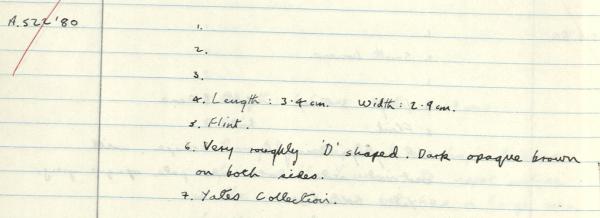 A.522'80
1.
2.
3.
4. Length : 3.4 cm. Width : 2.9 cm.
5. Flint.
6. Very roughly 'D' shaped. Dark opaque brown
on both sides.
7. Yates Collection.